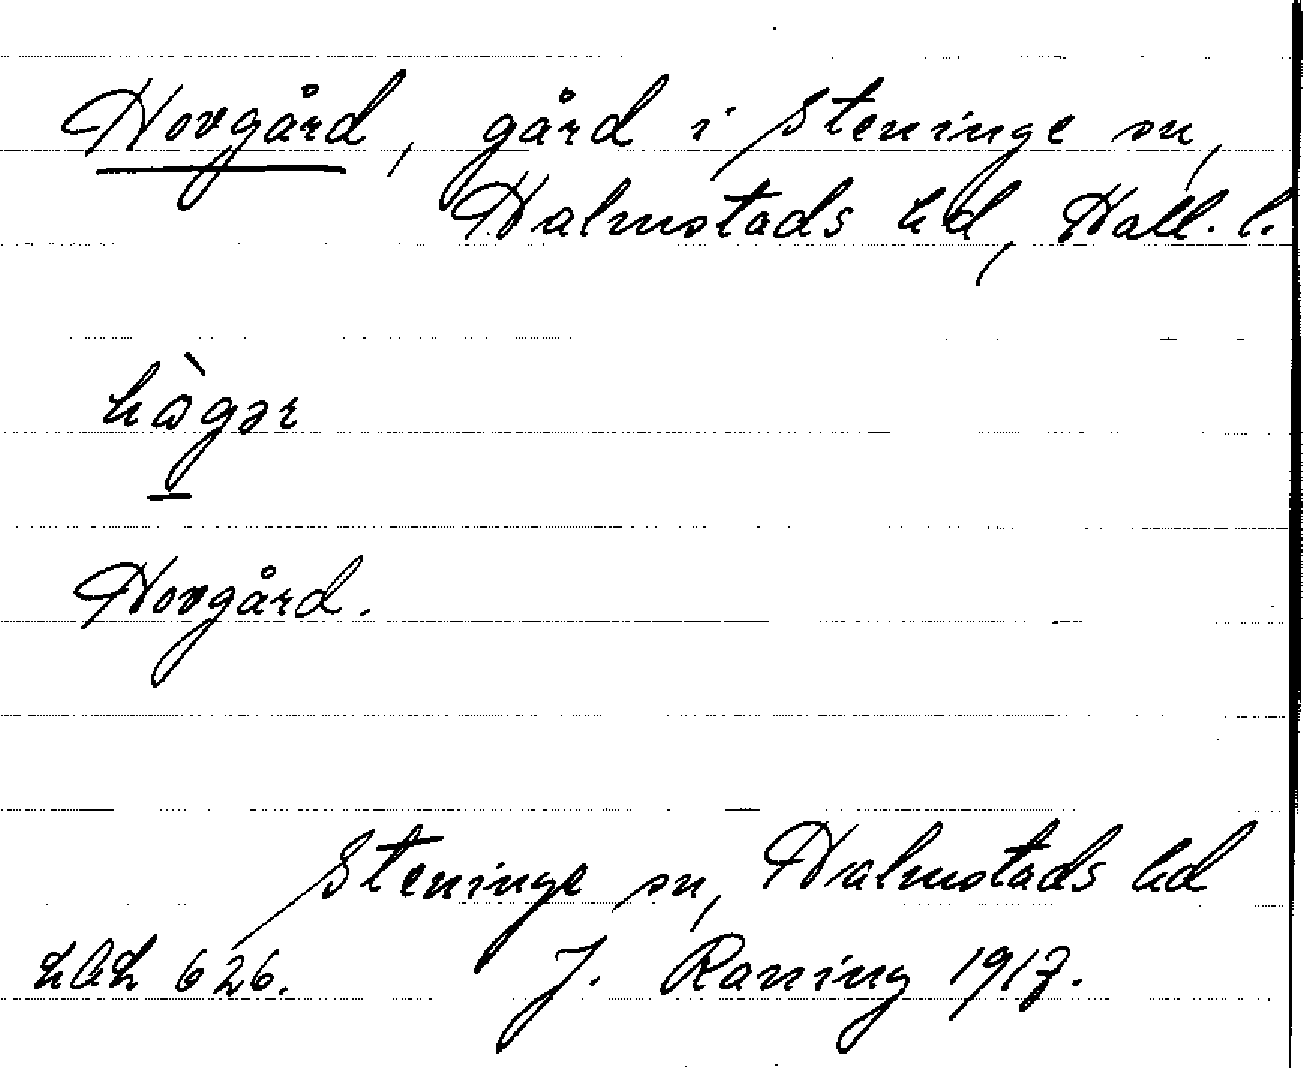 Hovgård, gård i Steninge sn,
Halmstads hd, Hall. l.
Hovgård.
Steninge sn, Halmstads hd
626. J. Raning 1917.